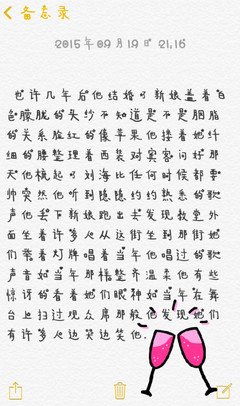 备忘录
2015年09月19日 21:16
也许几年后他结婚了新娘盖着白
色朦胧的头纱不知道是不是胭脂
的关系脸红的像苹果他搂着她纤
细的腰整理着西装对宾客问好那
天他梳起了刘海比任何时候都要
帅突然他听到隐隐约约熟悉的歌
声他丢下新娘跑出去发现教堂外
面坐着许多人从这街坐到那街她
们举着灯牌唱着当年他唱过的歌
声音如当年那样整齐温柔他有些
惊讶的看着她们眼神如当年在舞
台上扫过观众席那般他发现她们
有许多人边哭边笑他.